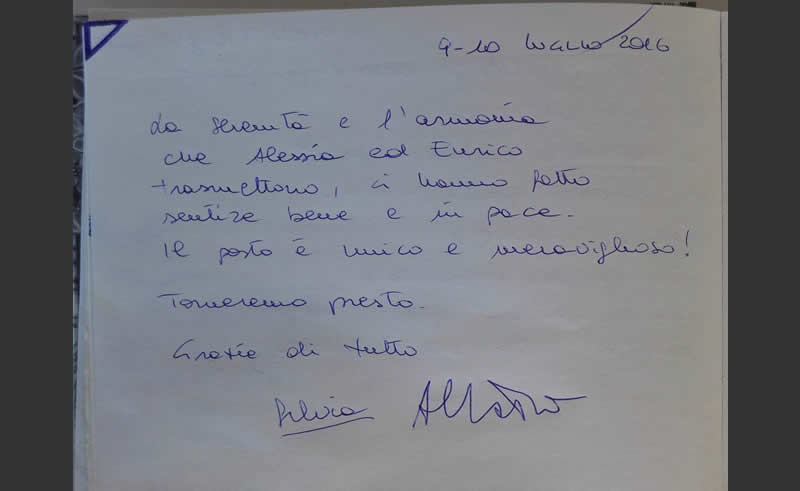 9-10 LUGLIO 2016
La serenità e l'armonia
che Alessia ed Enrico
trasmettono, ci hanno fatto
sentire bene e in pace.
Il posto è unico e meraviglioso!
Torneremo presto.
Grazie di tutto
Silvia